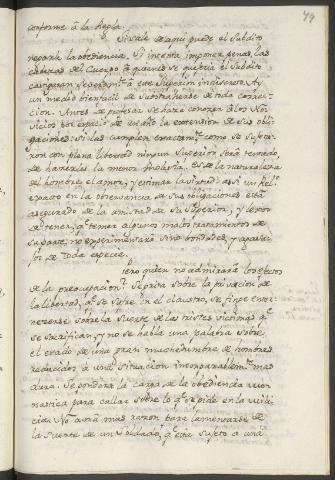 79
conforme á la Regla.
Si sale de aqui puede el Subdito
negarle la obediencia. Si intenta imponer penas, las
cabezas del Cuerpo á quienes se quexaria el Subdito
castigaran severam.te á este Superior indiscreto. Ay
un medio bien facil de substraherse de toda correc-
cion. Antes de profesar se hace conocer á los No-
vicios por medio de un año la extension de sus obli-
gaciones: si las cumplen exactam.te como se sujeta-
ron con plena libertad ningun Superior será tentado,
de hacerles la menor molestia. Es de la naturaleza
del hombre el amor, y estimar la virtud: asi un Reli-
gioso en la observancia de sus obligaciones está
asegurado de la amistad de su Superior; y lexos
de tener q.e temer algunos malos tratamientos de
su parte, no experimentará sino bondades, y
de toda especie.
Pero quien no admirará los efectos
de la preocupacion? Se grita sobre la privacion de
la libertad, q.e se sufre en el claustro, se finge enter-
necerse sobre la suerte de las tristes victimas q.e
se sacrifican, y no se habla una palabra sobre
el estado de una gran muchedumbre de hombres
reducidos á una situacion incomparablem.te mas
dura. Se pondera la carga de la obediencia mo-
nastica para callar sobre lo q.e se pide en la mili-
cia. No avrá mas razon para lamentarse de
la suerte de un Soldado, q.e está sujeto á una